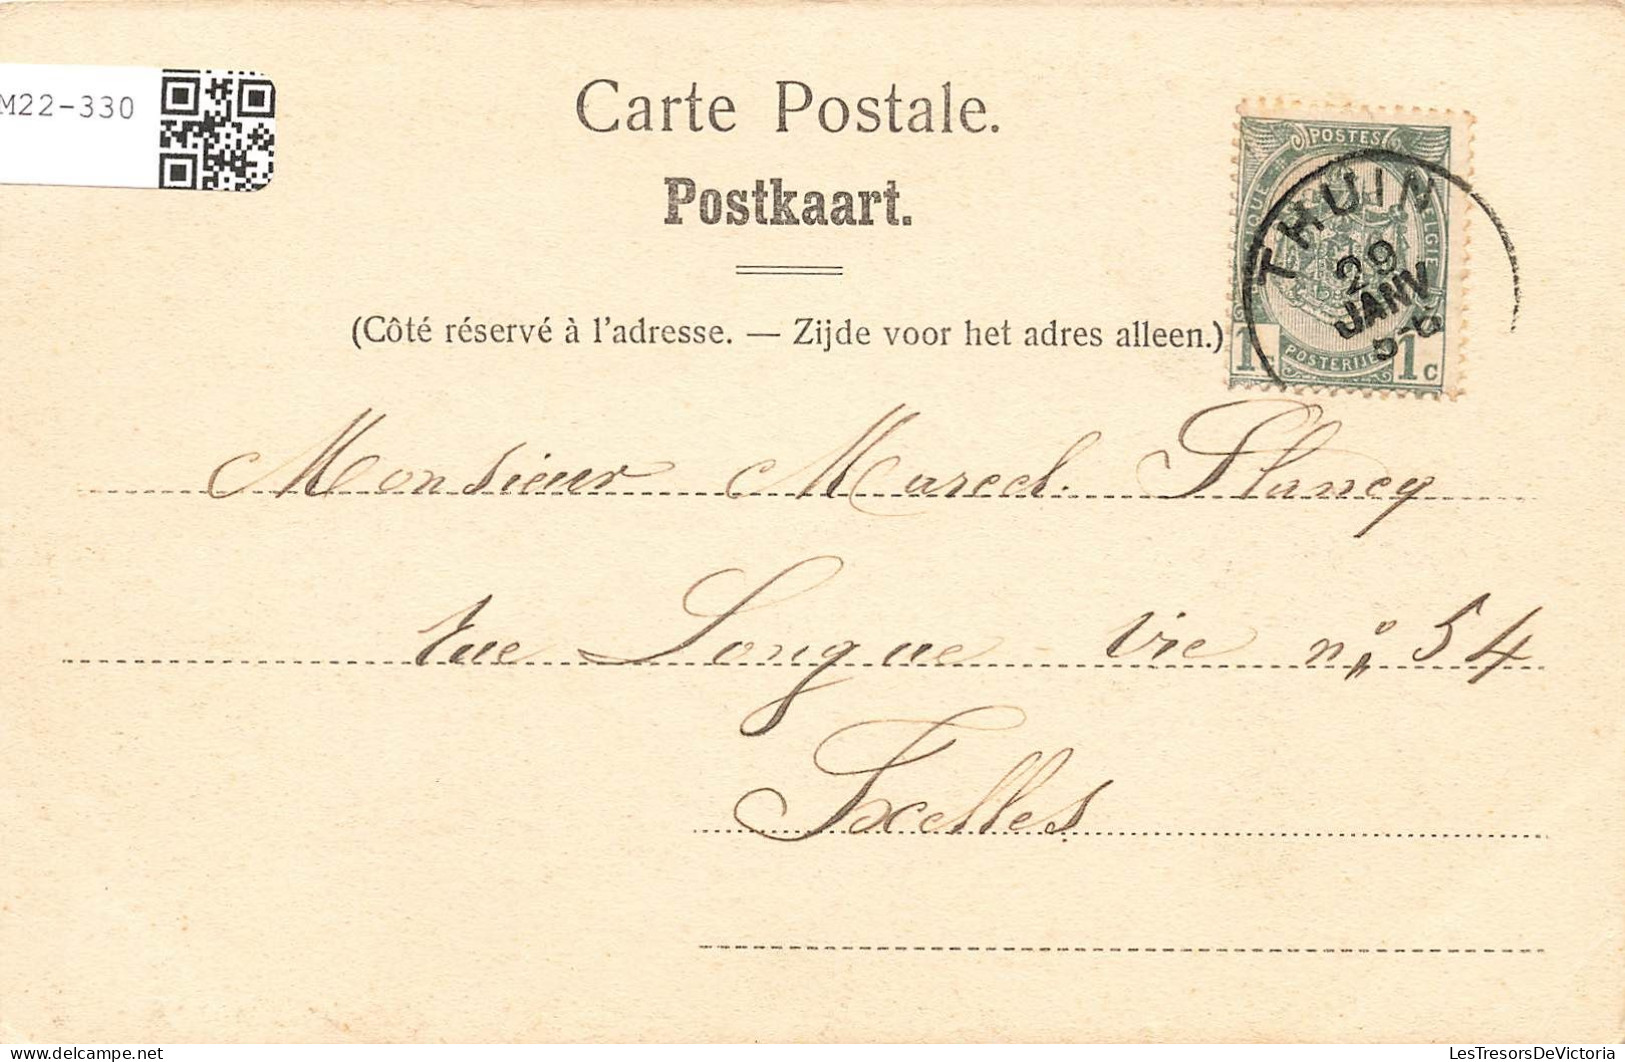 M22-330
Carte Postale.
Postkaart.
(Côté réservé à l'adresse. — Zijde voor het adres alleen.)
POSTES
BELGIE
POSTERIJEN
1c
THUIN
29
JANV
Monsieur Marcel Plancq
rue Longue Vie nº 54
Ixelles
LesTresorsDeVictoria